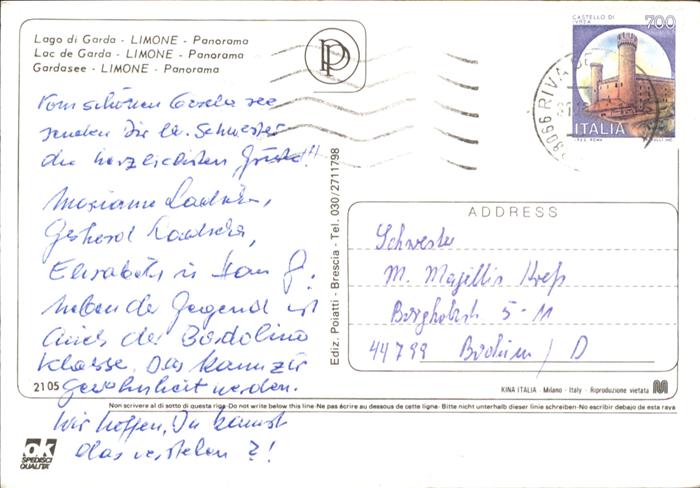 Lago di Garda - LIMONE - Panorama
Lac de Garda - LIMONE - Panorama
Gardasee - LIMONE - Panorama
P
CASTELLO DI IVREA
700
ITALIA
38066 RIVA DE
Vom schönen Gardasee
senden Dir lb. Schwester
die herzlichsten Grüße!
Marianne
Gerhard
Elisabeth u
neben der Gegend ist
auch der Bardolino
Klasse. Das kann zur
Gewohnheit werden.
Wir hoffen, Du kannst
das verstehen ?!
Ediz. Poiatti - Brescia - Tel. 030/2711798
ADDRESS
Schwester
M.
5 - 11
44799 Bochum / D
2105
KINA ITALIA - Milano - Italy - Riproduzione vietata
Non scrivere al di sotto di questa riga - Do not write below this line - Ne pas écrire au dessous de cette ligne - Bitte nicht unterhalb dieser linie schreiben - No escribir debajo de esta raya
ok
SPEDISCI
QUALITA'